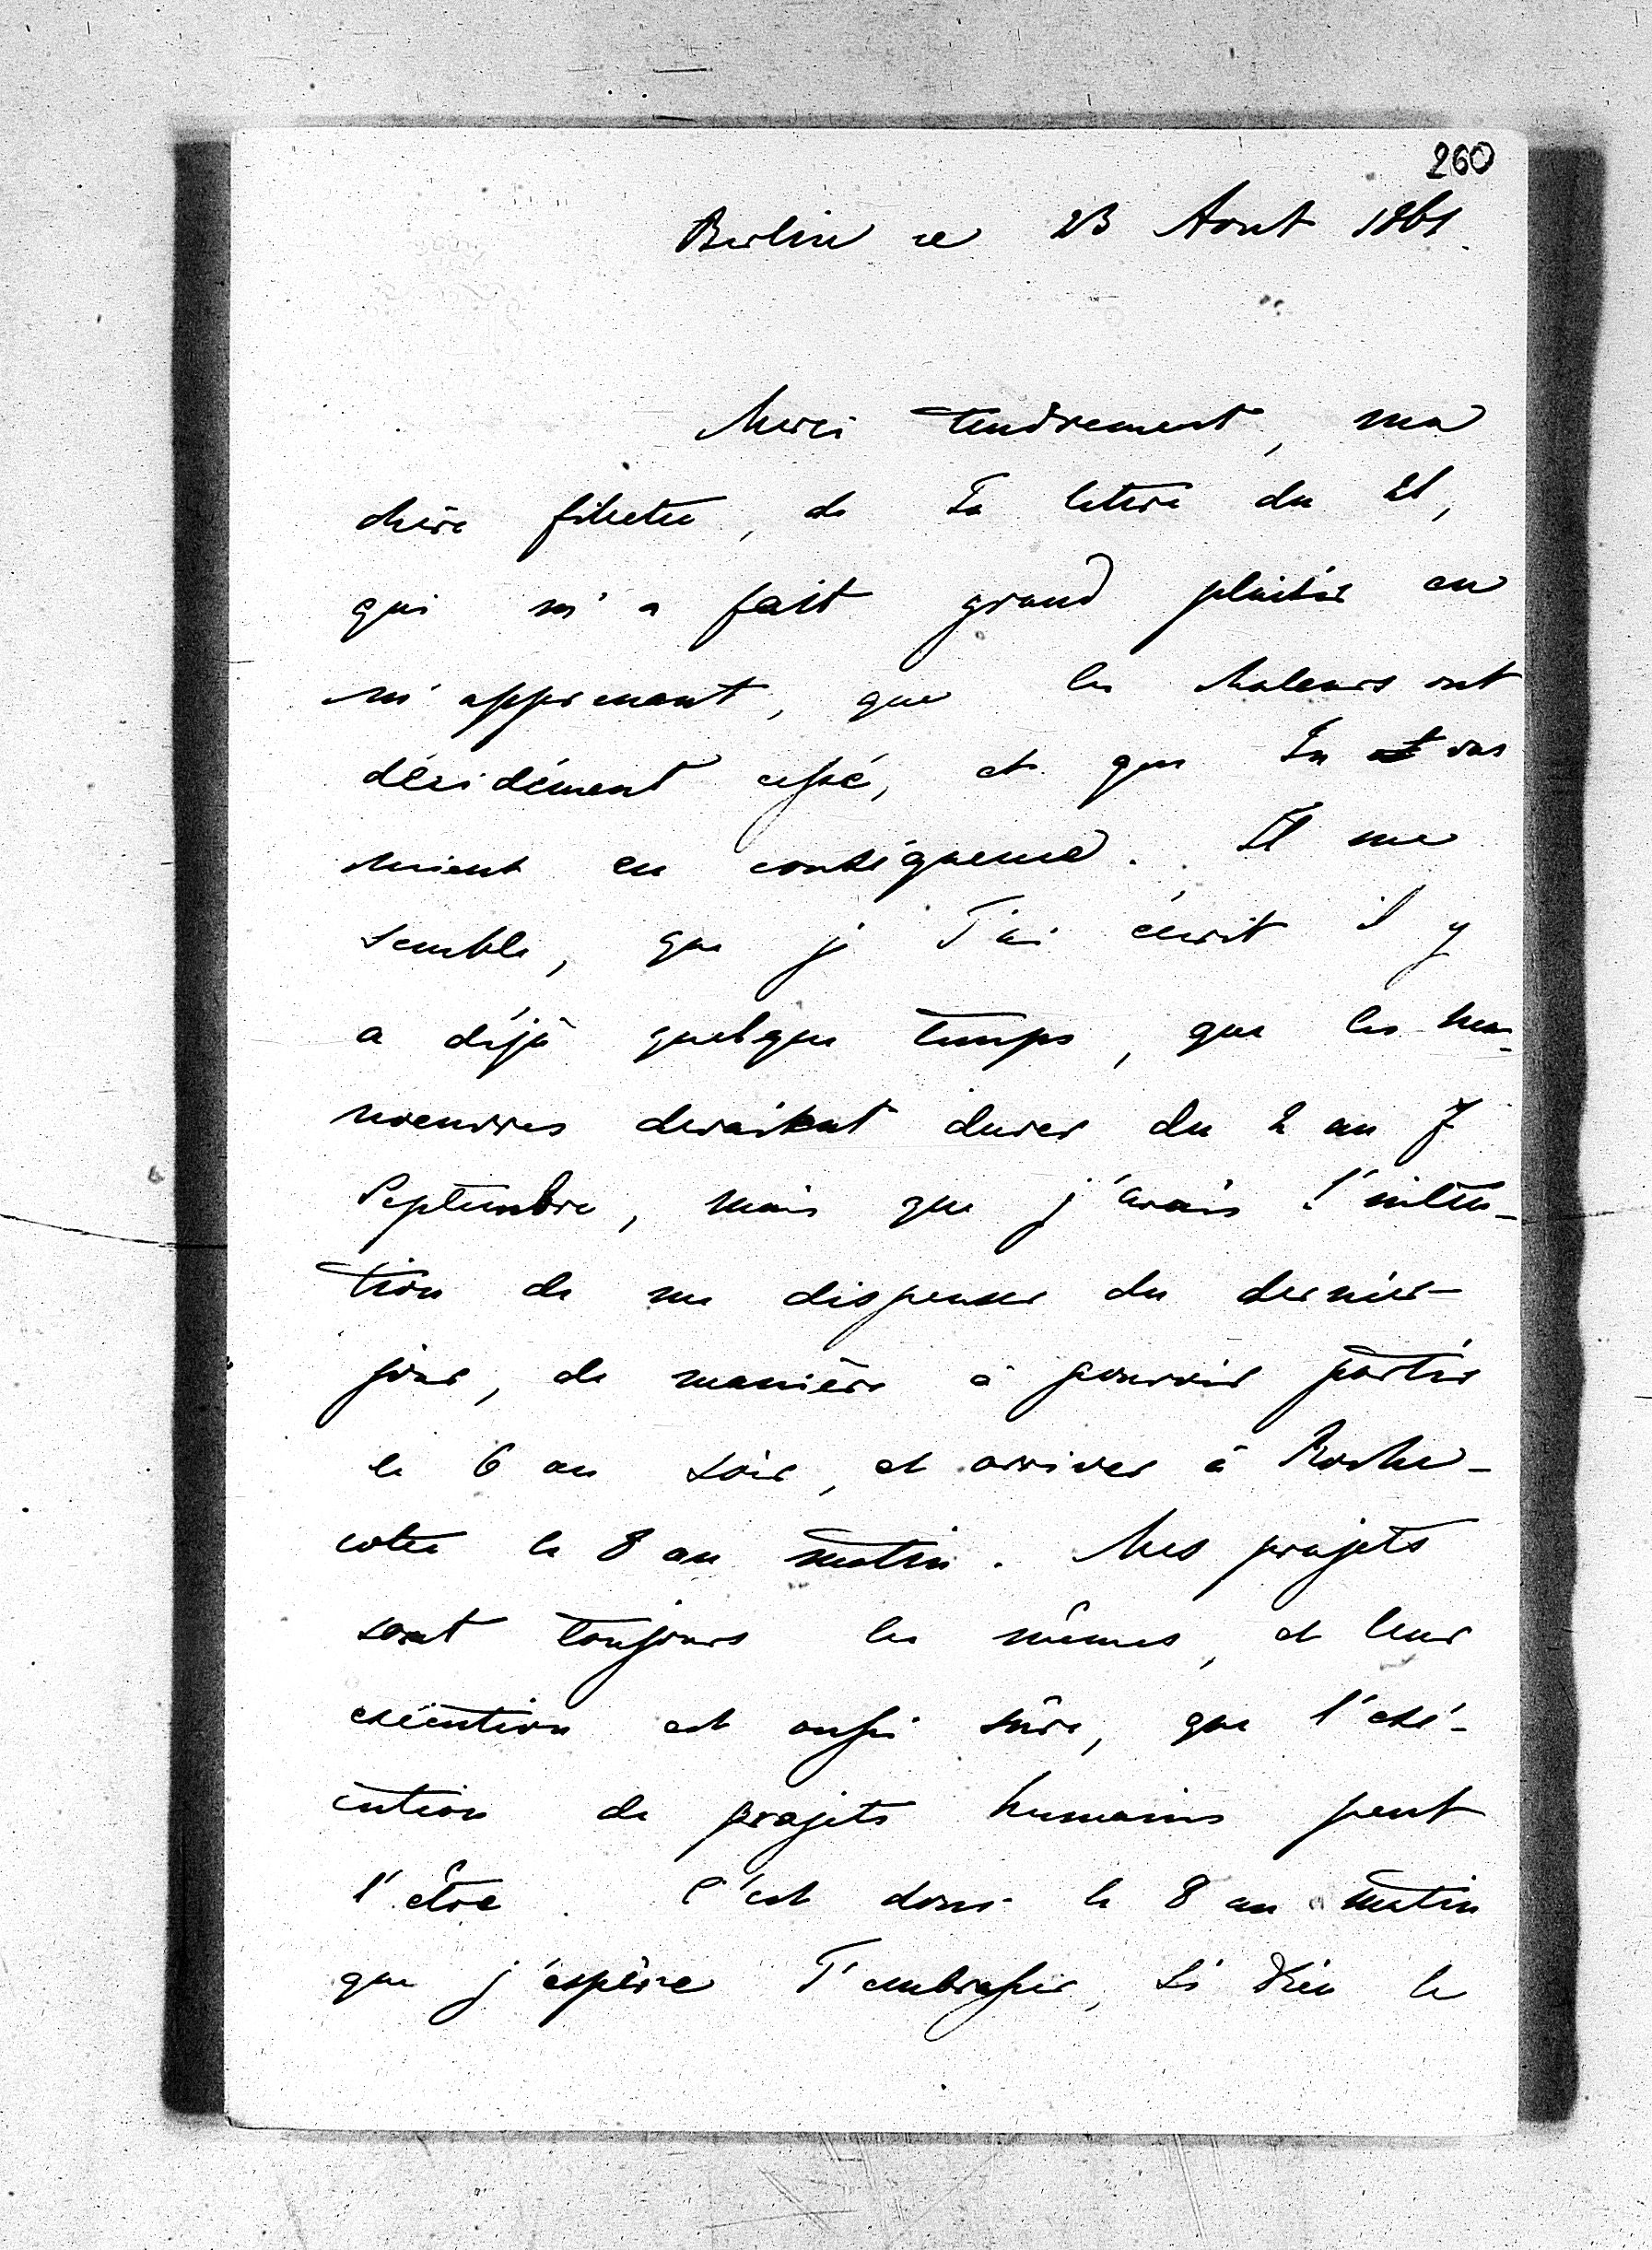 260
Berlin ce 23 Aout 1861.
Merci tendrement, ma
chère fillette, de Ta lettre du 21,
qui m'a fait grand plaisir en
m'apprenant, que les chaleurs ont
décidément cessé, et que Tu vas
mieux en conséquence. Il me
semble, que je T'ai écrit il y
a déjà quelque temps, que les ma-
noeuvres devaient durer du 2 au 7
Septembre, mais que j'avais l'inten-
tion de me dispenser du dernier
jour, de manière à pouvoir partir
le 6 au soir, et arriver à Roche-
cotte le 8 au matin. Mes projets
sont toujours les mêmes, et leur
exécution est aussi sûre, que l'exé-
cution de projets humains peut
l'être. C'est donc le 8 au matin
que j'espère T'embrasser, si Dieu le